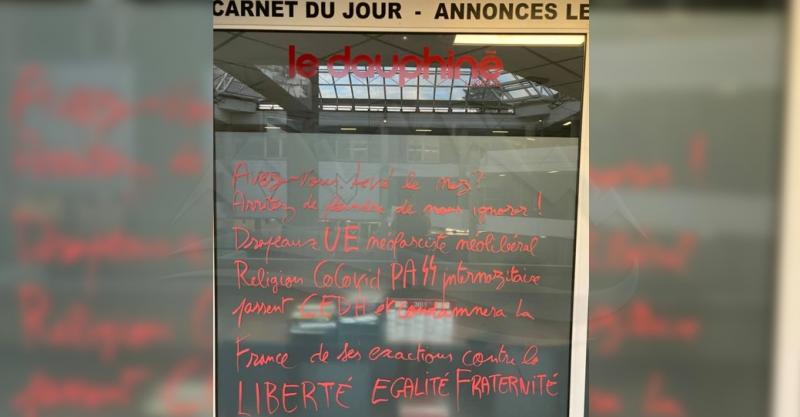 CARNET DU JOUR - ANNONCES LE
le dauphiné
Avez-vous levé le nez?
Arrêtez de feindre de nous ignorer!
Drapeaux UE néofasciste néolibéral
Religion CoCovid PASS
passent CEDH et condamnera la
France de ses exactions contre la
LIBERTÉ EGALITÉ FRATERNITÉ